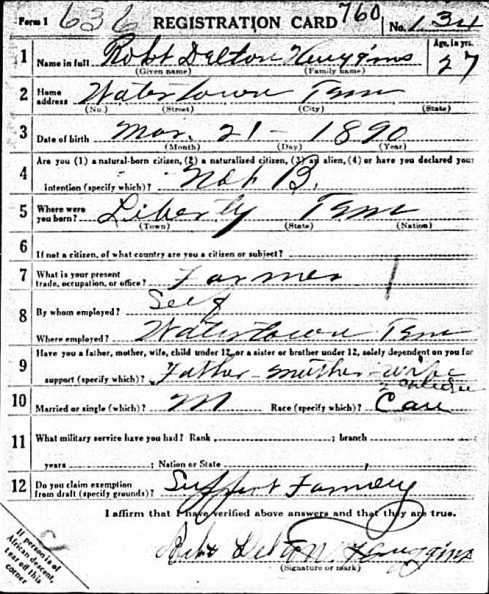 Form 1 636 REGISTRATION CARD 760 No. 134
1 Name in full Robt Delton Huggins Age, in yrs. 27
(Given name) (Family name)
2 Home address Watertown Tenn
(No.) (Street) (City) (State)
3 Date of birth Mar. 21 - 1890
(Month) (Day) (Year)
4 Are you (1) a natural-born citizen, (2) a naturalized citizen, (3) an alien, (4) or have you declared your
intention (specify which)? Nat B.
5 Where were you born? Liberty Tenn
(Town) (State) (Nation)
6 If not a citizen, of what country are you a citizen or subject?
7 What is your present trade, occupation, or office? Farmer
8 By whom employed? Self
Where employed? Watertown Tenn
9 Have you a father, mother, wife, child under 12, or a sister or brother under 12, solely dependent on you for
support (specify which)? Father - mother - wife
2 children
10 Married or single (which)? M Race (specify which)? Cau
11 What military service have you had? Rank ; branch
years ; Nation or State
12 Do you claim exemption from draft (specify grounds)? Support Family
I affirm that I have verified above answers and that they are true.
Robt Delton Huggins
(Signature or mark)
If person is of
African descent,
tear off this
corner